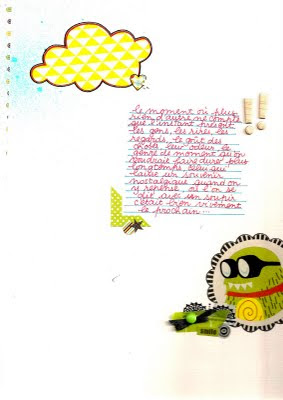 le moment où plus
rien d'autre ne compte
que l'instant présent
les gens, les rires, les
regards, le goût des
choses, leur odeur, le
genre de moment qu'on
voudrait faire durer plus
longtemps, celui qui
laisse un souvenir
nostalgique quand on
y repense, et l'on se
dit avec un sourire
c'était bien vivement
le prochain...
!!
smile